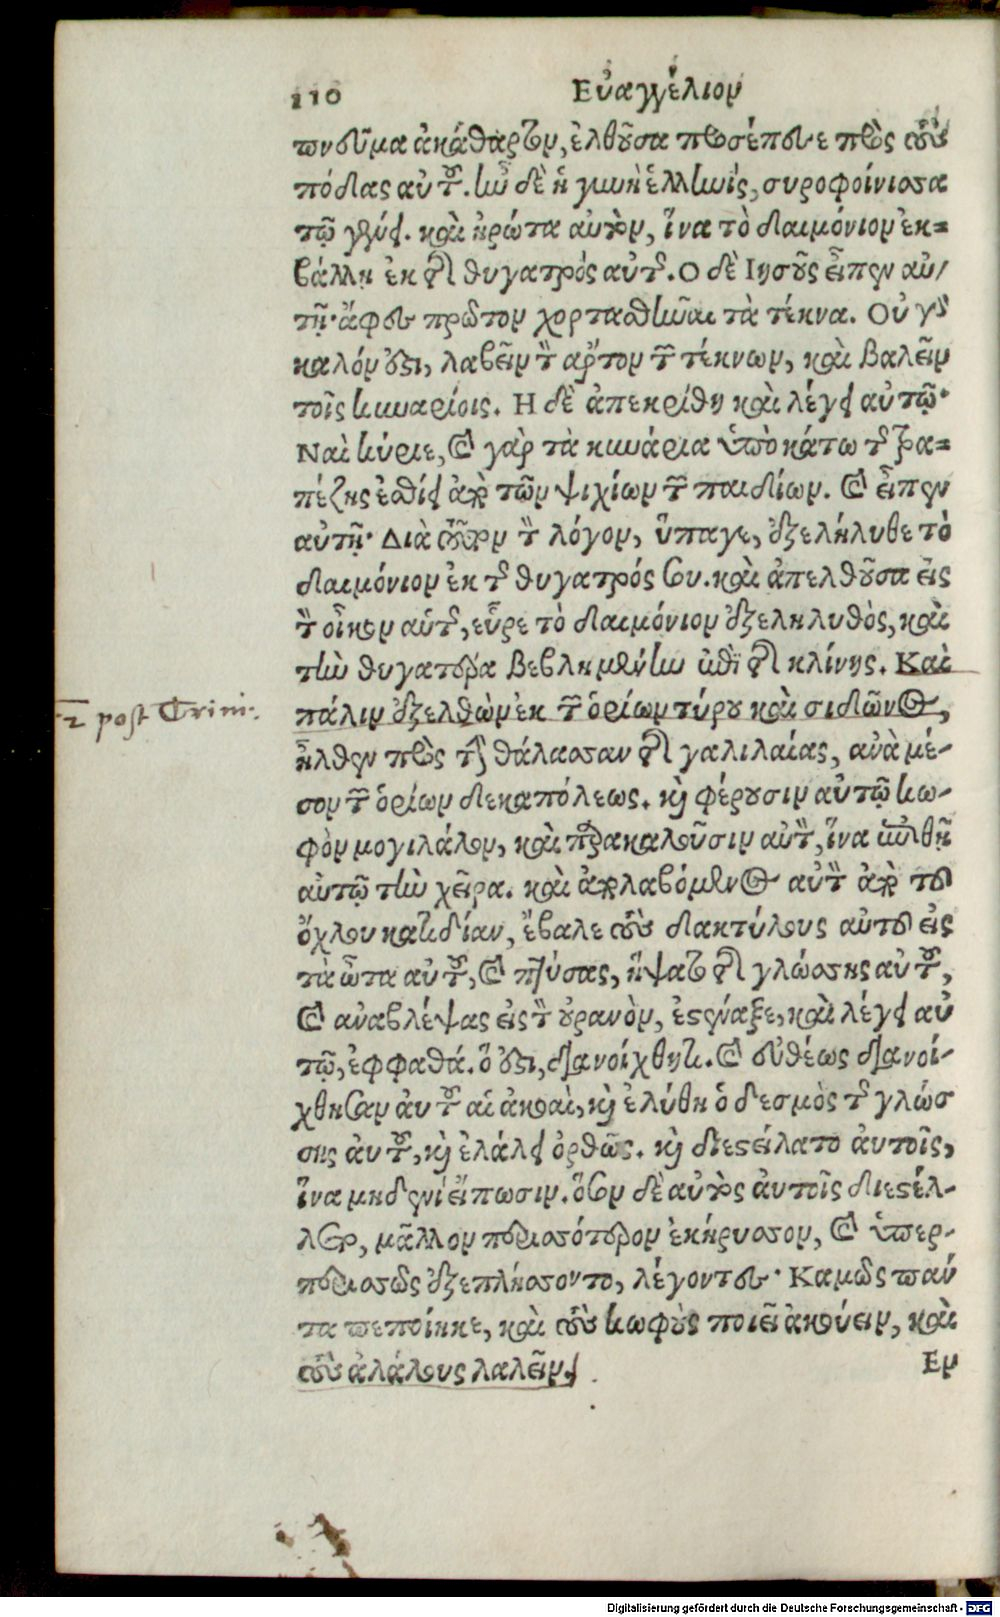 110 Εὐαγγέλιον
πνεῦμα ἀκάθαρτον, ἐλθοῦσα προσέπεσε πρὸς τοὺς
πόδας αὐτοῦ. ἦν δὲ ἡ γυνὴ ἑλληνίς, συροφοίνισσα
τῷ γένει. καὶ ἠρώτα αὐτὸν, ἵνα τὸ δαιμόνιον ἐκ=
βάλλῃ ἐκ τῆς θυγατρός αὐτῆς. Ο δὲ Ιησοῦς εἶπεν αὐ/
τῇ· ἄφες πρῶτον χορτασθῆναι τὰ τέκνα. Οὐ γὰρ
καλόν ἐστι, λαβεῖν τὸν ἄρτον τῶν τέκνων, καὶ βαλεῖν
τοῖς κυναρίοις. Η δὲ ἀπεκρίθη καὶ λέγει αὐτῷ·
Ναὶ κύριε, καὶ γὰρ τὰ κυνάρια ὑποκάτω τῆς τρα=
πέζης ἐσθίει ἀπὸ τῶν ψιχίων τῶν παιδίων. καὶ εἶπεν
αὐτῇ· Διὰ τοῦτον τὸν λόγον, ὕπαγε, ἐξελήλυθε τὸ
δαιμόνιον ἐκ τῆς θυγατρός σου. καὶ ἀπελθοῦσα εἰς
τὸν οἶκον αὑτῆς, εὗρε τὸ δαιμόνιον ἐξεληλυθὸς, καὶ
τὴν θυγατέρα βεβλημένην ἐπὶ τῆς κλίνης. Καὶ
12 post Trini.
πάλιν ἐξελθὼν ἐκ τῶν ὁρίων τύρου καὶ σιδῶνος,
ἦλθεν πρὸς τὴν θάλασσαν τῆς γαλιλαίας, ἀνὰ μέ-
σον τῶν ὁρίων δεκαπόλεως. καὶ φέρουσιν αὐτῷ κω-
φὸν μογιλάλον, καὶ παρακαλοῦσιν αὐτὸν, ἵνα ἐπιθῇ
αὐτῷ τὴν χεῖρα. καὶ ἀπολαβόμενος αὐτὸν ἀπὸ τοῦ
ὄχλου κατιδίαν, ἔβαλε τοὺς δακτύλους αὑτοῦ εἰς
τὰ ὦτα αὐτοῦ, καὶ πτύσας, ἥψατο τῆς γλώσσης αὐτοῦ,
καὶ ἀναβλέψας εἰς τὸν οὐρανὸν, ἐστέναξε, καὶ λέγει αὐ
τῷ, ἐφφαθά. ὅ ἐστι, διανοίχθητι. καὶ εὐθέως διανοί-
χθησαν ἀυτοῦ αἱ ἀκοαὶ, καὶ ἐλύθη ὁ δεσμὸς τῆς γλώσ
σης ἀυτοῦ, καὶ ἐλάλει ὀρθῶς. καὶ διεστείλατο ἀυτοῖς,
ἵνα μηδενὶ εἴπωσιν. ὅσον δὲ αὐτὸς ἀυτοῖς διεστέλ-
λετο, μᾶλλον περισσότερον ἐκήρυσσον, καὶ ὑπερ-
περισσῶς ἐξεπλήσσοντο, λέγοντες· Καλῶς παν
τα πεποίηκε, καὶ τοὺς κωφοὺς ποιεῖ ἀκούειν, καὶ
τοὺς ἀλάλους λαλεῖν.
Εν
Digitalisierung gefördert durch die Deutsche Forschungsgemeinschaft - DFG